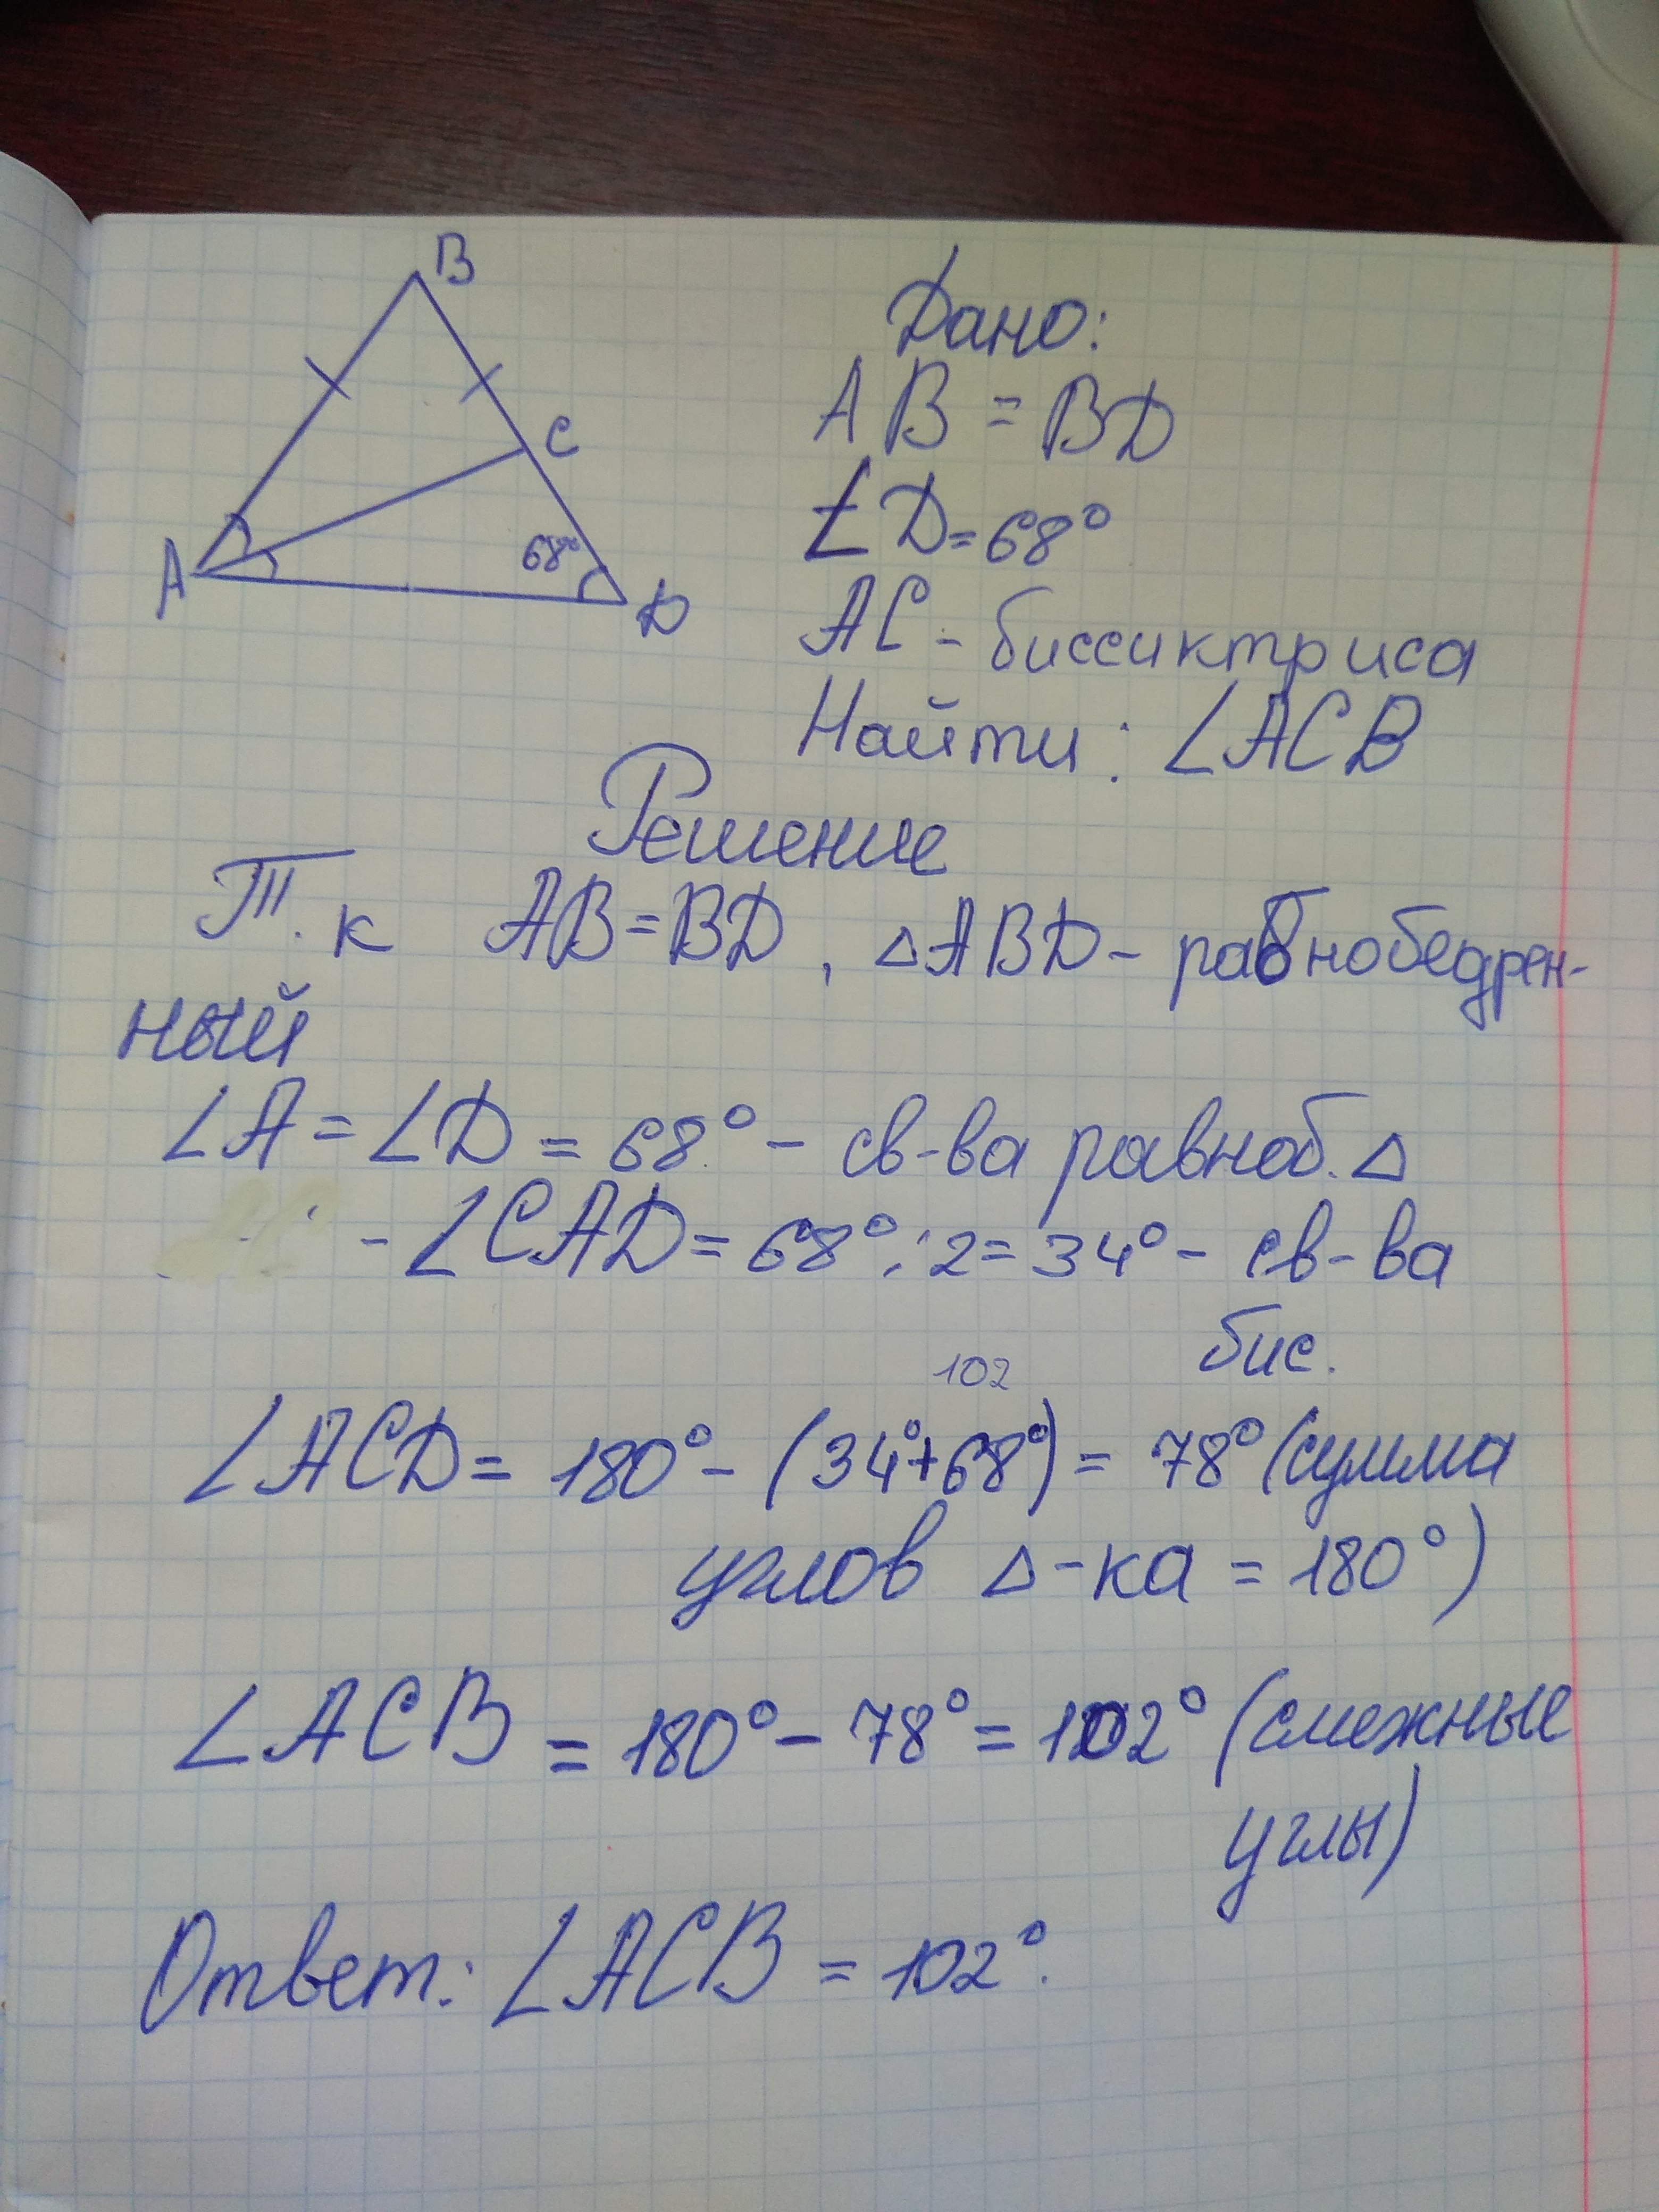 B
C
A
68°
D
Дано:
AB = BD
∠D = 68°
AC - биссиктриса
Найти: ∠ACB
Решение
Т. к AB = BD, △ABD - равнобедрен-
ный
∠A = ∠D = 68° - св-ва равноб. △
- ∠CAD = 68° : 2 = 34° - св-ва
бис.
102
∠ACD = 180° - (34° + 68°) = 78° (сумма
углов △-ка = 180°)
∠ACB = 180° - 78° = 102° (смежные
углы)
Ответ: ∠ACB = 102°.